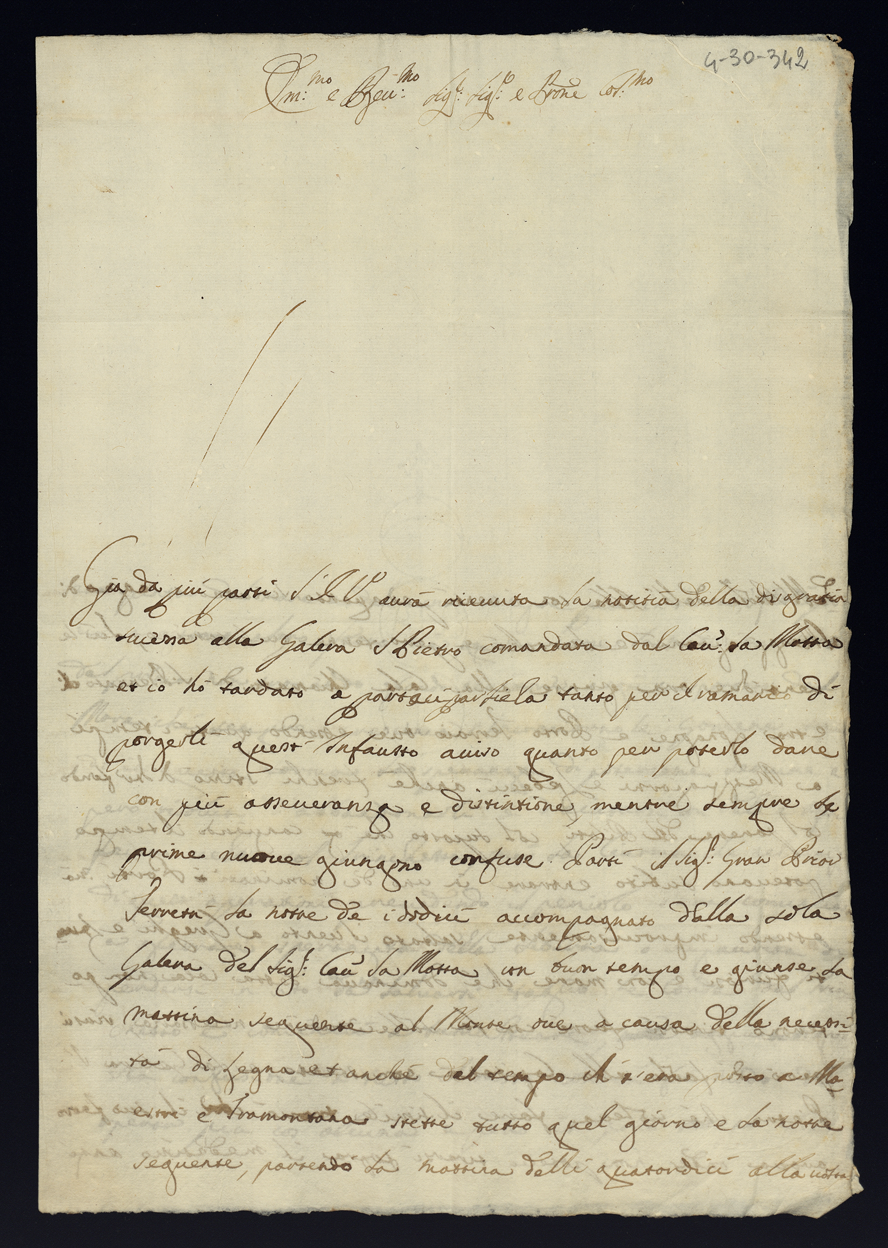 4-30-342
Ill:mo e Reu:mo Sig.r Sig.r e Prone Col:mo
Già da più parti S I V aurà riceuuta la notitia della disgratia
sucessa alla Galera S Pietro comandata dal Cau: La Motta
et io hò tardato a partecipargliela tanto per il ramarico di
porgerli quest Infausto auiso quanto per poterlo dare
con più asseueranza e distintione, mentre sempre le
prime nuoue giungono confuse. Partì il Sig.r Gran Prior
Ferretti la notte de i dodici accompagnato dalla sola
Galera del Sig.r Cau La Motta con buon tempo e giunse la
mattina seguente al Monte oue a causa della necessi-
tà di legna et anche del tempo ch s'era posto a Ma-
estri e Tramontana stette tutto quel giorno e la notte
seguente, partendo la mattina delli quatordici alla uolta